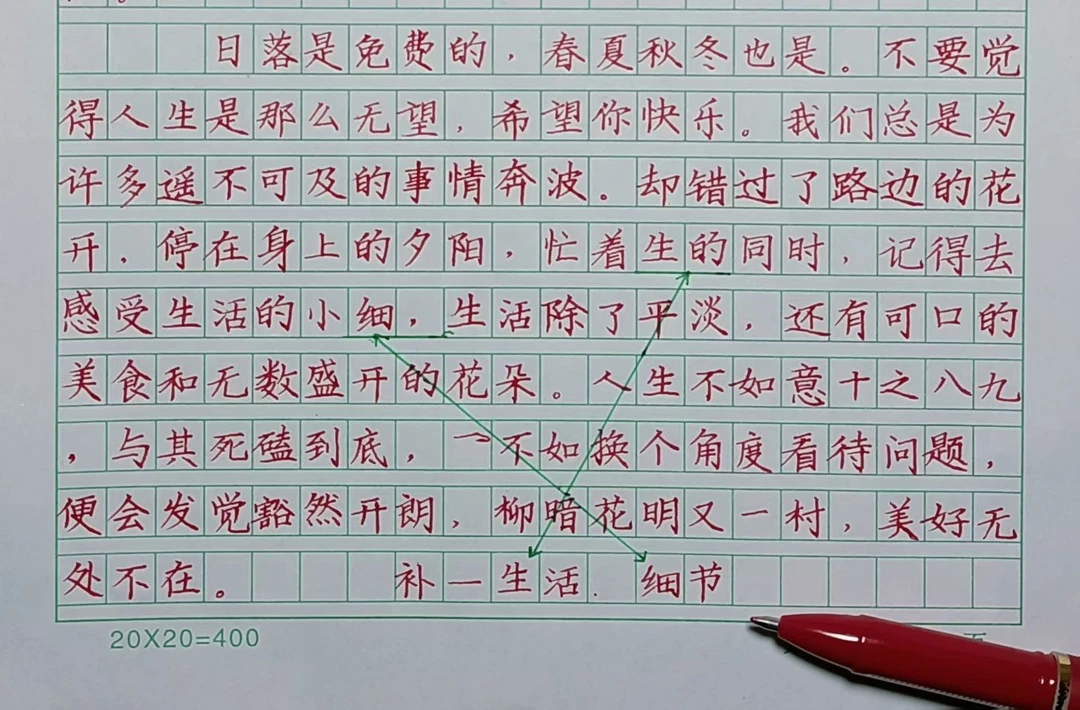 日落是免费的，春夏秋冬也是。不要觉
得人生是那么无望，希望你快乐。我们总是为
许多遥不可及的事情奔波。却错过了路边的花
开，停在身上的夕阳，忙着生的同时，记得去
感受生活的小细，生活除了平淡，还有可口的
美食和无数盛开的花朵。人生不如意十之八九
，与其死磕到底，一不如换个角度看待问题，
便会发觉豁然开朗，柳暗花明又一村，美好无
处不在。 补一生活．细节
20X20=400